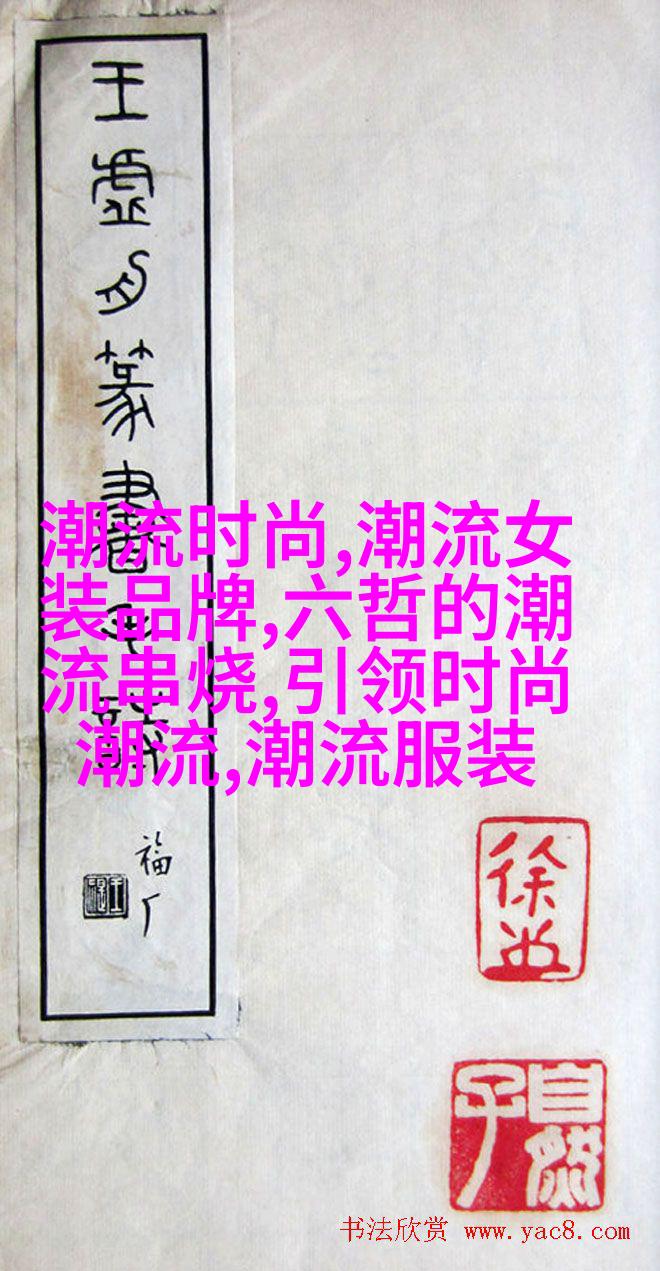 王虚舟篆書
福厂
潮流时尚,潮流女
装品牌,六哲的潮
流串烧,引领时尚
潮流,潮流服装
自然子
书法欣赏 www.yac8.com